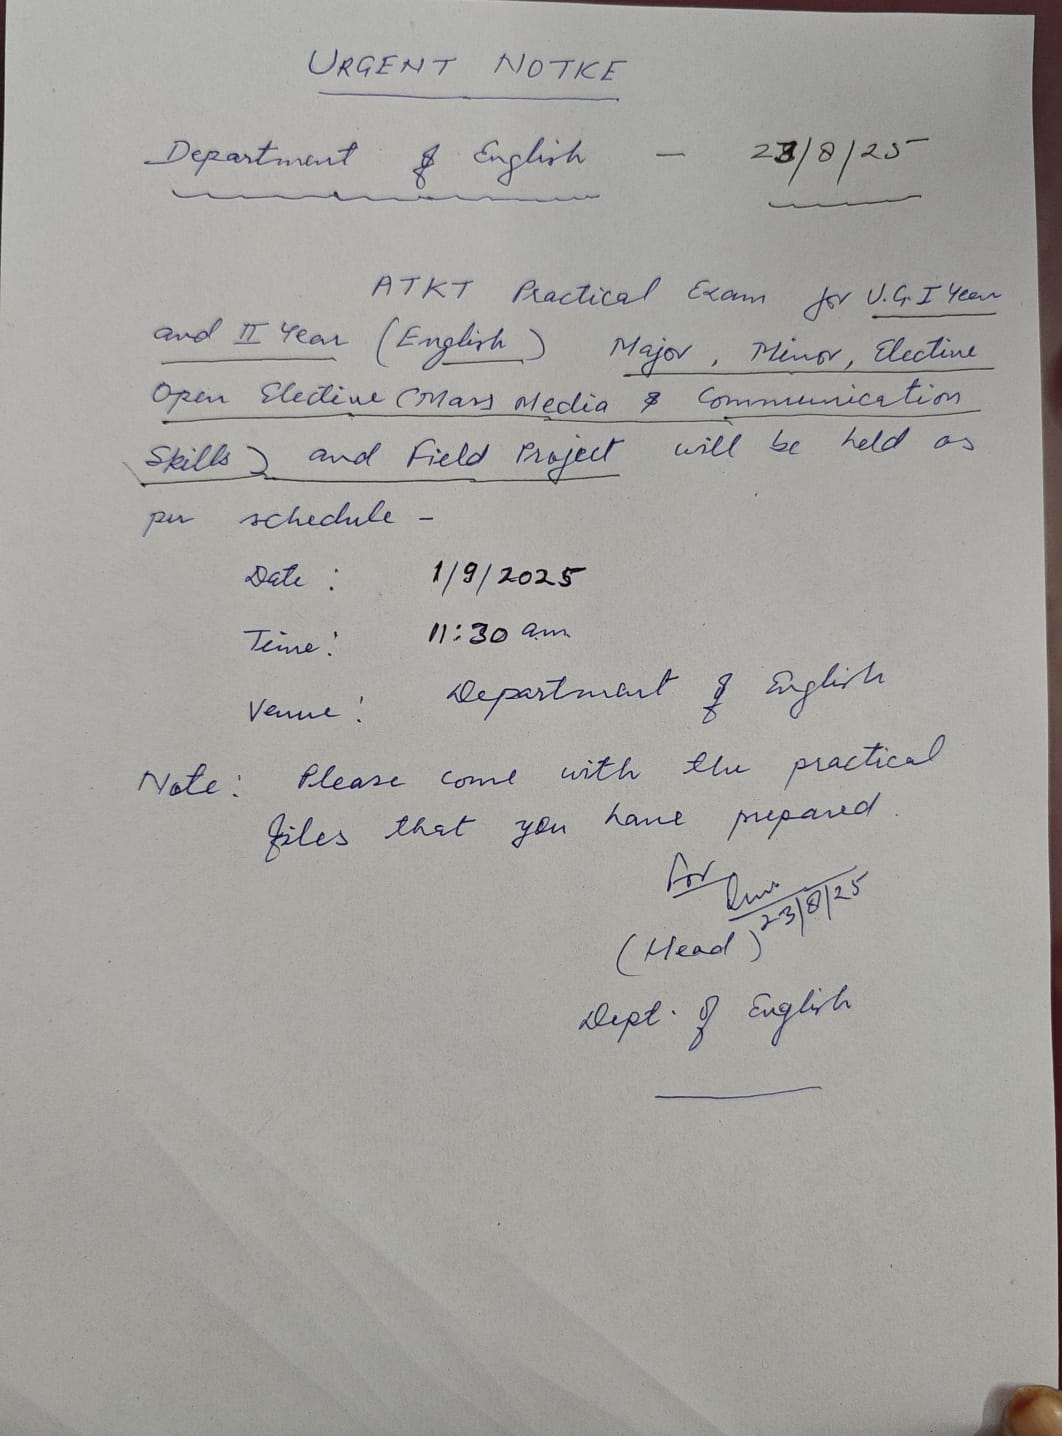 URGENT NOTICE
Department of English - 23/8/25
ATKT Practical Exam for U.G. I Year
and II Year (English) Major, Minor, Elective
Open Elective (Mass Media & Communication
Skills) and Field Project will be held as
per schedule -
Date : 1/9/2025
Time : 11:30 am
Venue : Department of English
Note : Please come with the practical
files that you have prepared.
For
23/8/25
(Head)
Dept. of English